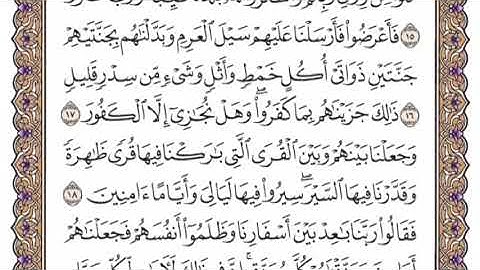 ١٥ فَأَعْرَضُوا۟ فَأَرْسَلْنَا عَلَيْهِمْ سَيْلَ ٱلْعَرِمِ وَبَدَّلْنَٰهُم بِجَنَّتَيْهِمْ
جَنَّتَيْنِ ذَوَاتَىْ أُكُلٍ خَمْطٍ وَأَثْلٍ وَشَىْءٍ مِّن سِدْرٍ قَلِيلٍ
١٦ ذَٰلِكَ جَزَيْنَٰهُم بِمَا كَفَرُوا۟ۖ وَهَلْ نُجَٰزِىٓ إِلَّا ٱلْكَفُورَ ١٧
وَجَعَلْنَا بَيْنَهُمْ وَبَيْنَ ٱلْقُرَى ٱلَّتِى بَٰرَكْنَا فِيهَا قُرًى ظَٰهِرَةً
وَقَدَّرْنَا فِيهَا ٱلسَّيْرَۖ سِيرُوا۟ فِيهَا لَيَالِىَ وَأَيَّامًا ءَامِنِينَ ١٨
فَقَالُوا۟ رَبَّنَا بَٰعِدْ بَيْنَ أَسْفَارِنَا وَظَلَمُوٓا۟ أَنفُسَهُمْ فَجَعَلْنَٰهُمْ